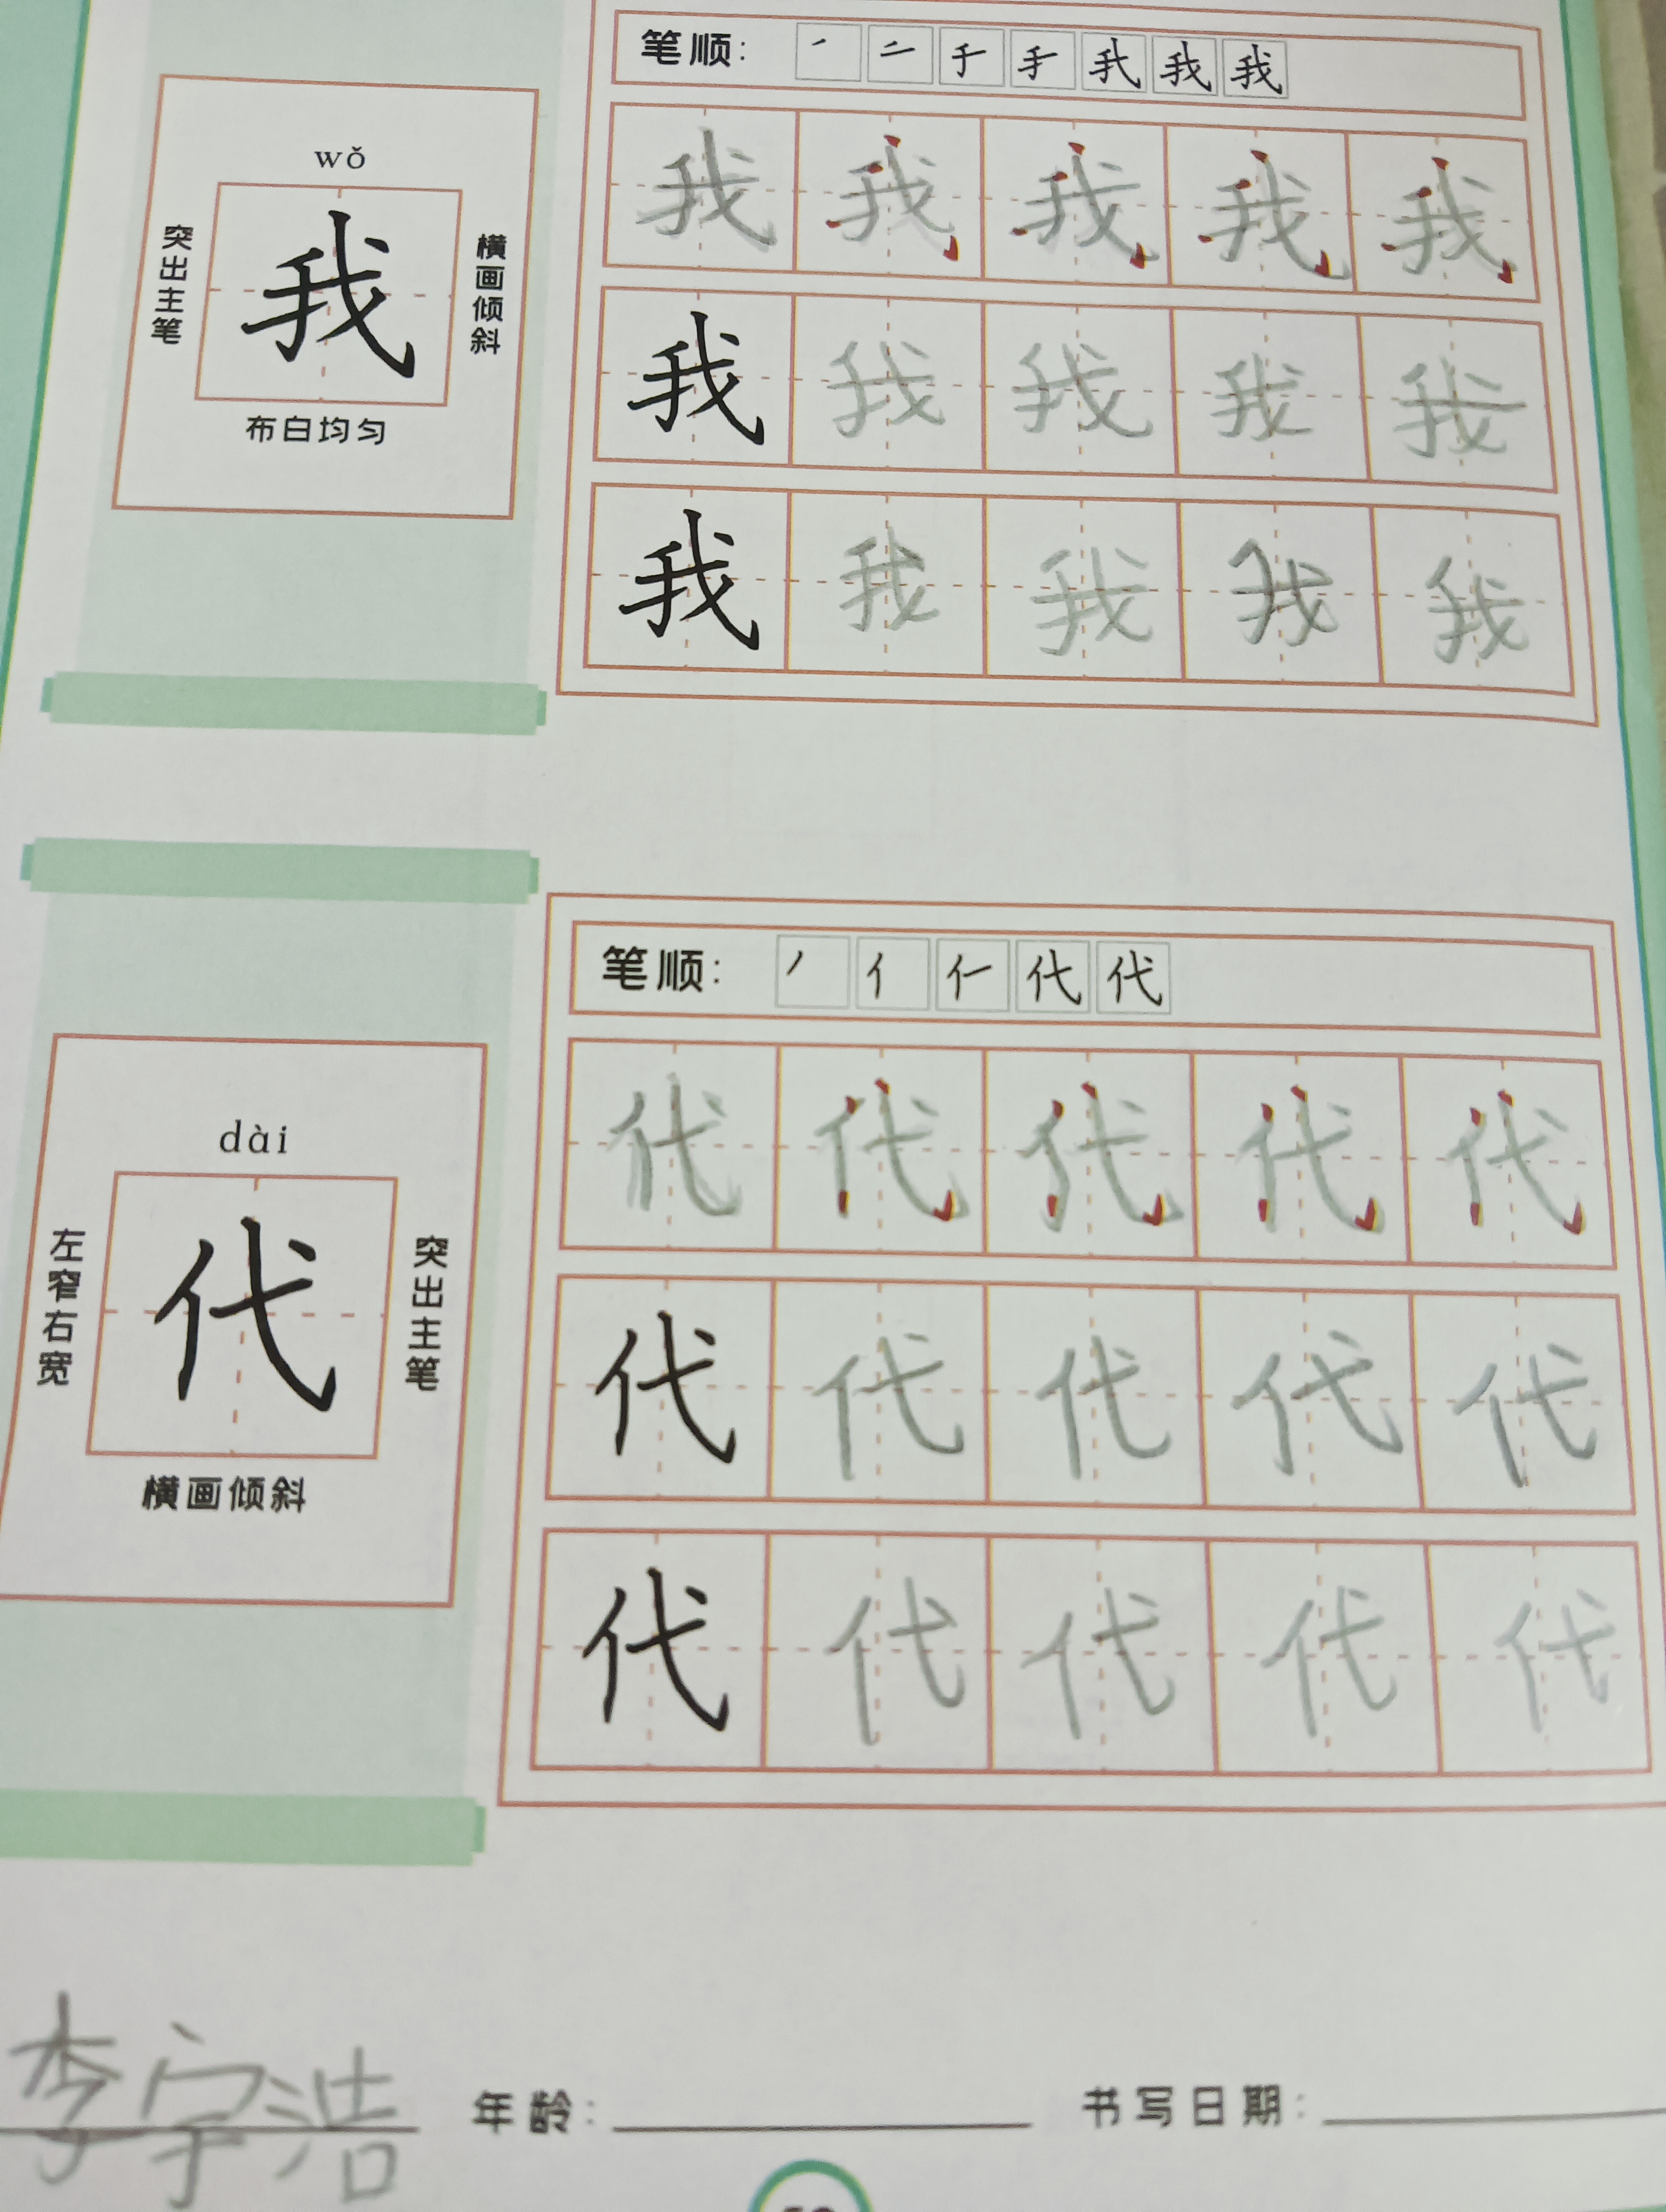 笔顺：
我 我 我 我 我
wǒ
突出主笔
我
横画倾斜
布白均匀
我 我 我 我 我
我 我 我 我 我
笔顺：
代 代 代 代 代
dài
左窄右宽
代
突出主笔
横画倾斜
代 代 代 代 代
代 代 代 代 代
李宇浩 年龄： 书写日期：